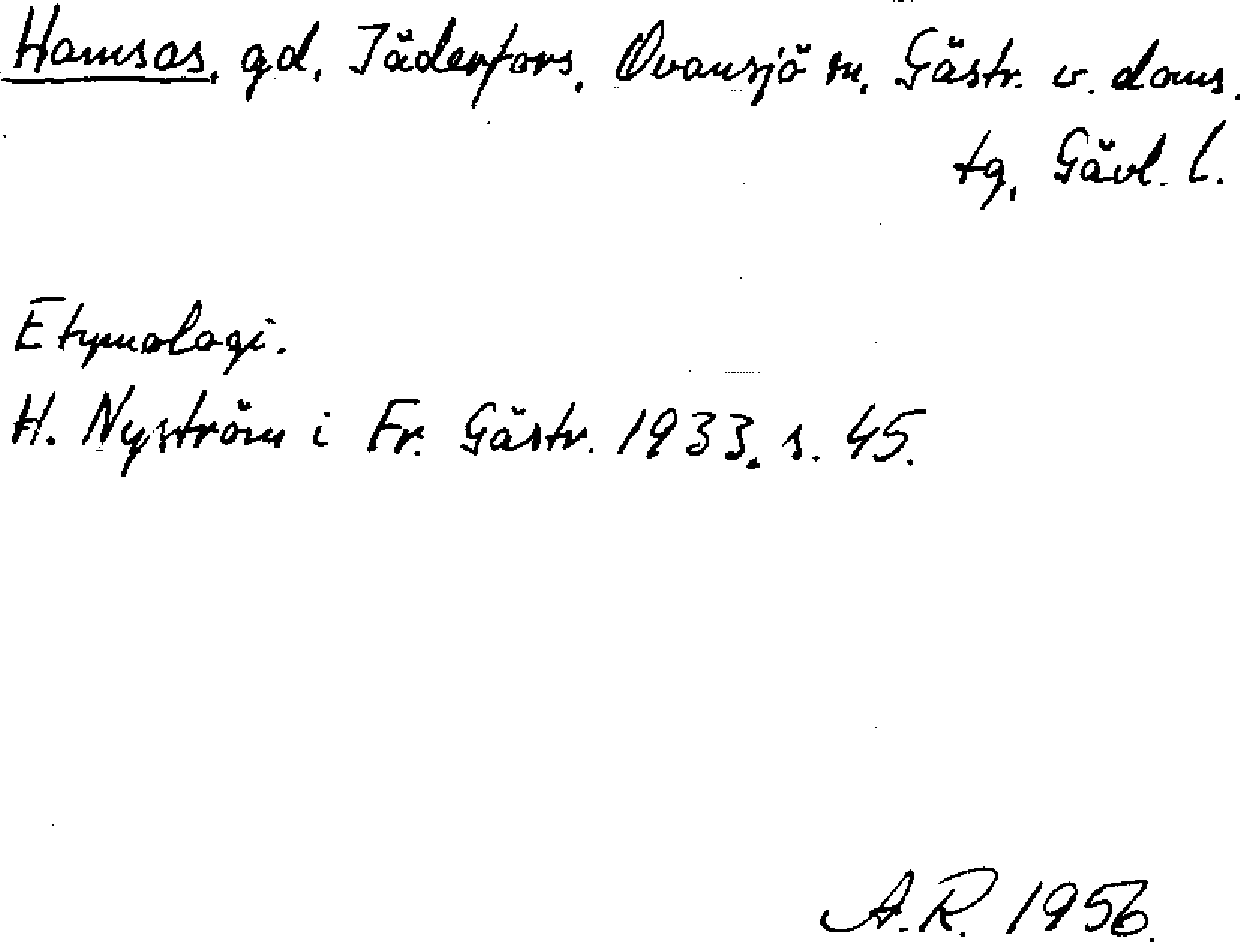 Hamsas, gd, Jäderfors, Ovansjö sn, Gästr. v. doms.
tg, Gävl. l.
Etymologi.
H. Nyström i Fr. Gästr. 1933, s. 45.
A.R. 1956.